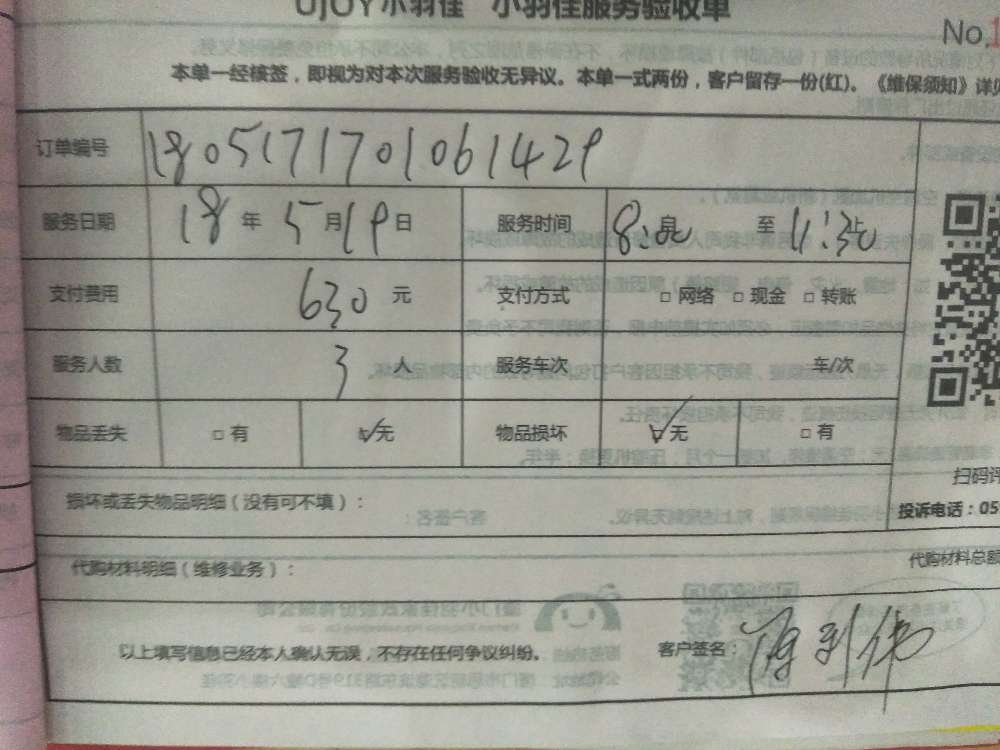 UJOY小羽佳 小羽佳服务验收单
No.1
本单一经核签，即视为对本次服务验收无异议。本单一式两份，客户留存一份(红)。《维保须知》详见
订单编号 1805171701061429
服务日期 18 年 5 月 19 日 服务时间 8:00 至 11:30
支付费用 630 元 支付方式 □ 网络 □ 现金 □ 转账
服务人数 3 人 服务车次 车/次
物品丢失 □ 有 ☑无 物品损坏 ☑无 □ 有
扫码评
损坏或丢失物品明细（没有可不填）：
投诉电话：05
代购材料明细（维修业务）： 代购材料总额
以上填写信息已经本人确认无误，不存在任何争议纠纷。 客户签名：